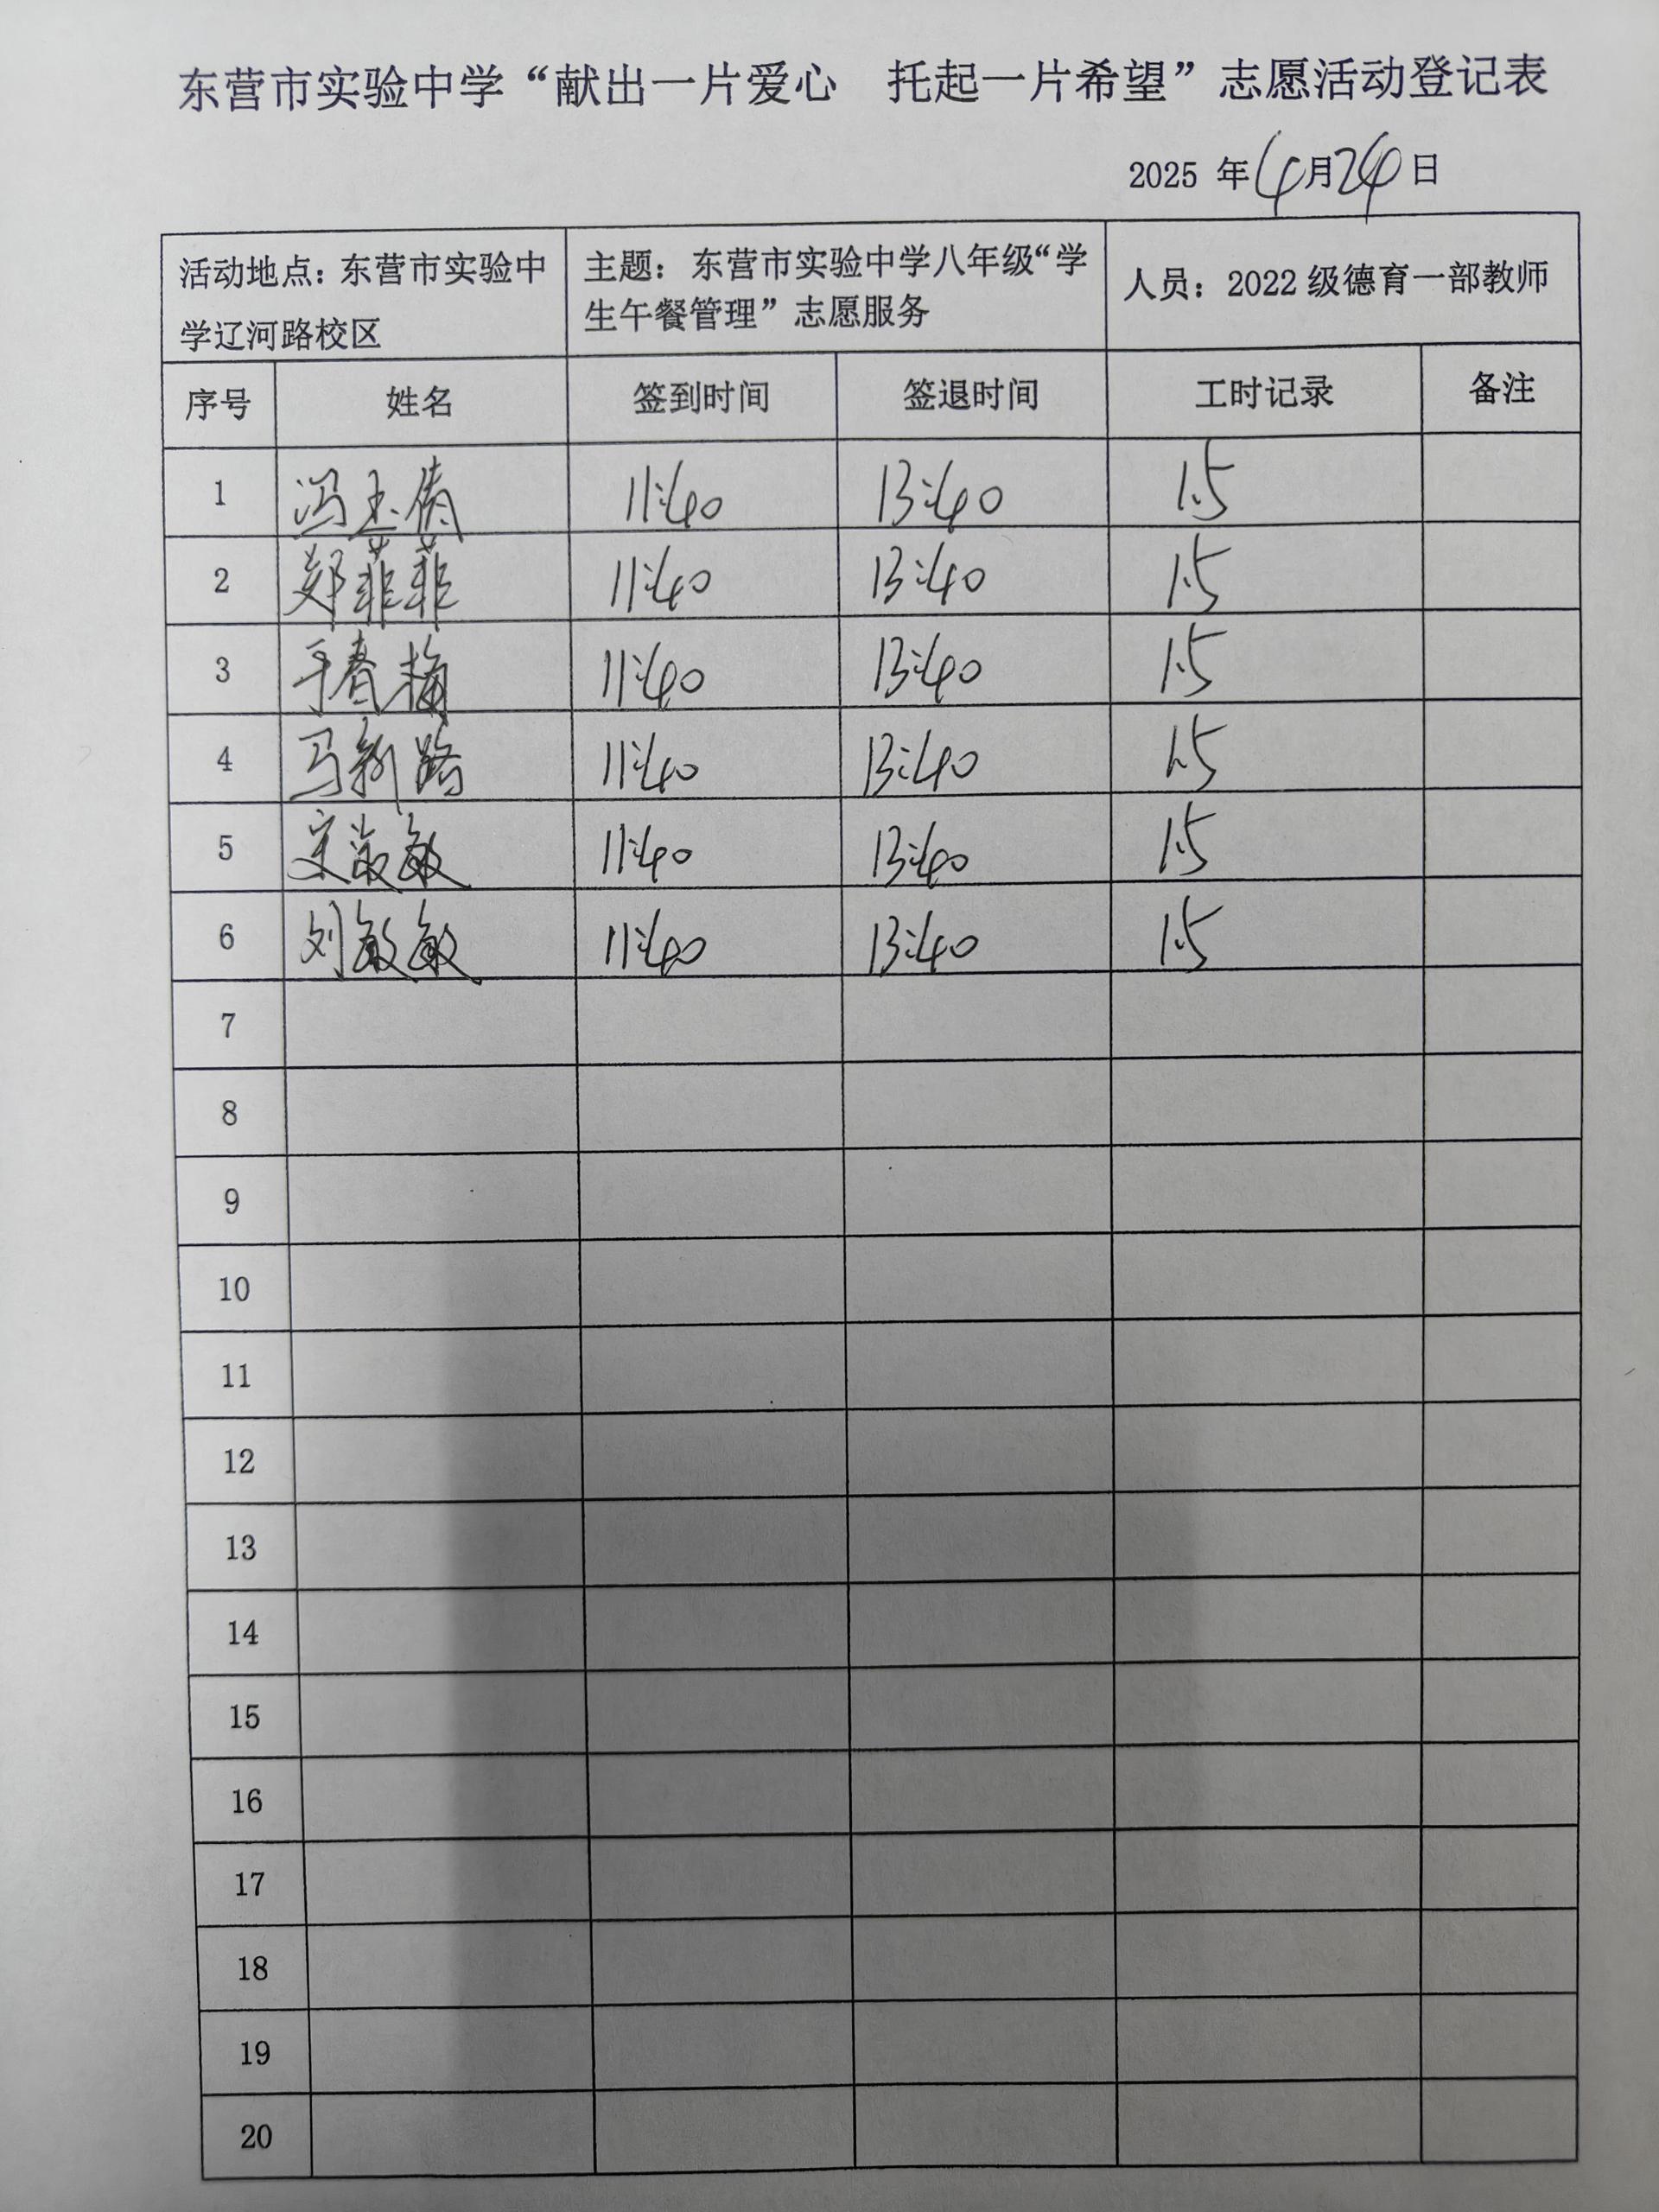 东营市实验中学“献出一片爱心 托起一片希望”志愿活动登记表
2025 年 4 月 24 日
活动地点：东营市实验中学辽河路校区 主题：东营市实验中学八年级“学生午餐管理”志愿服务 人员：2022 级德育一部教师
序号 姓名 签到时间 签退时间 工时记录 备注
1 冯玉倩 11:40 13:40 1.5
2 郑菲菲 11:40 13:40 1.5
3 于春梅 11:40 13:40 1.5
4 马新路 11:40 13:40 1.5
5 宋 敏 11:40 13:40 1.5
6 刘敏敏 11:40 13:40 1.5
7
8
9
10
11
12
13
14
15
16
17
18
19
20